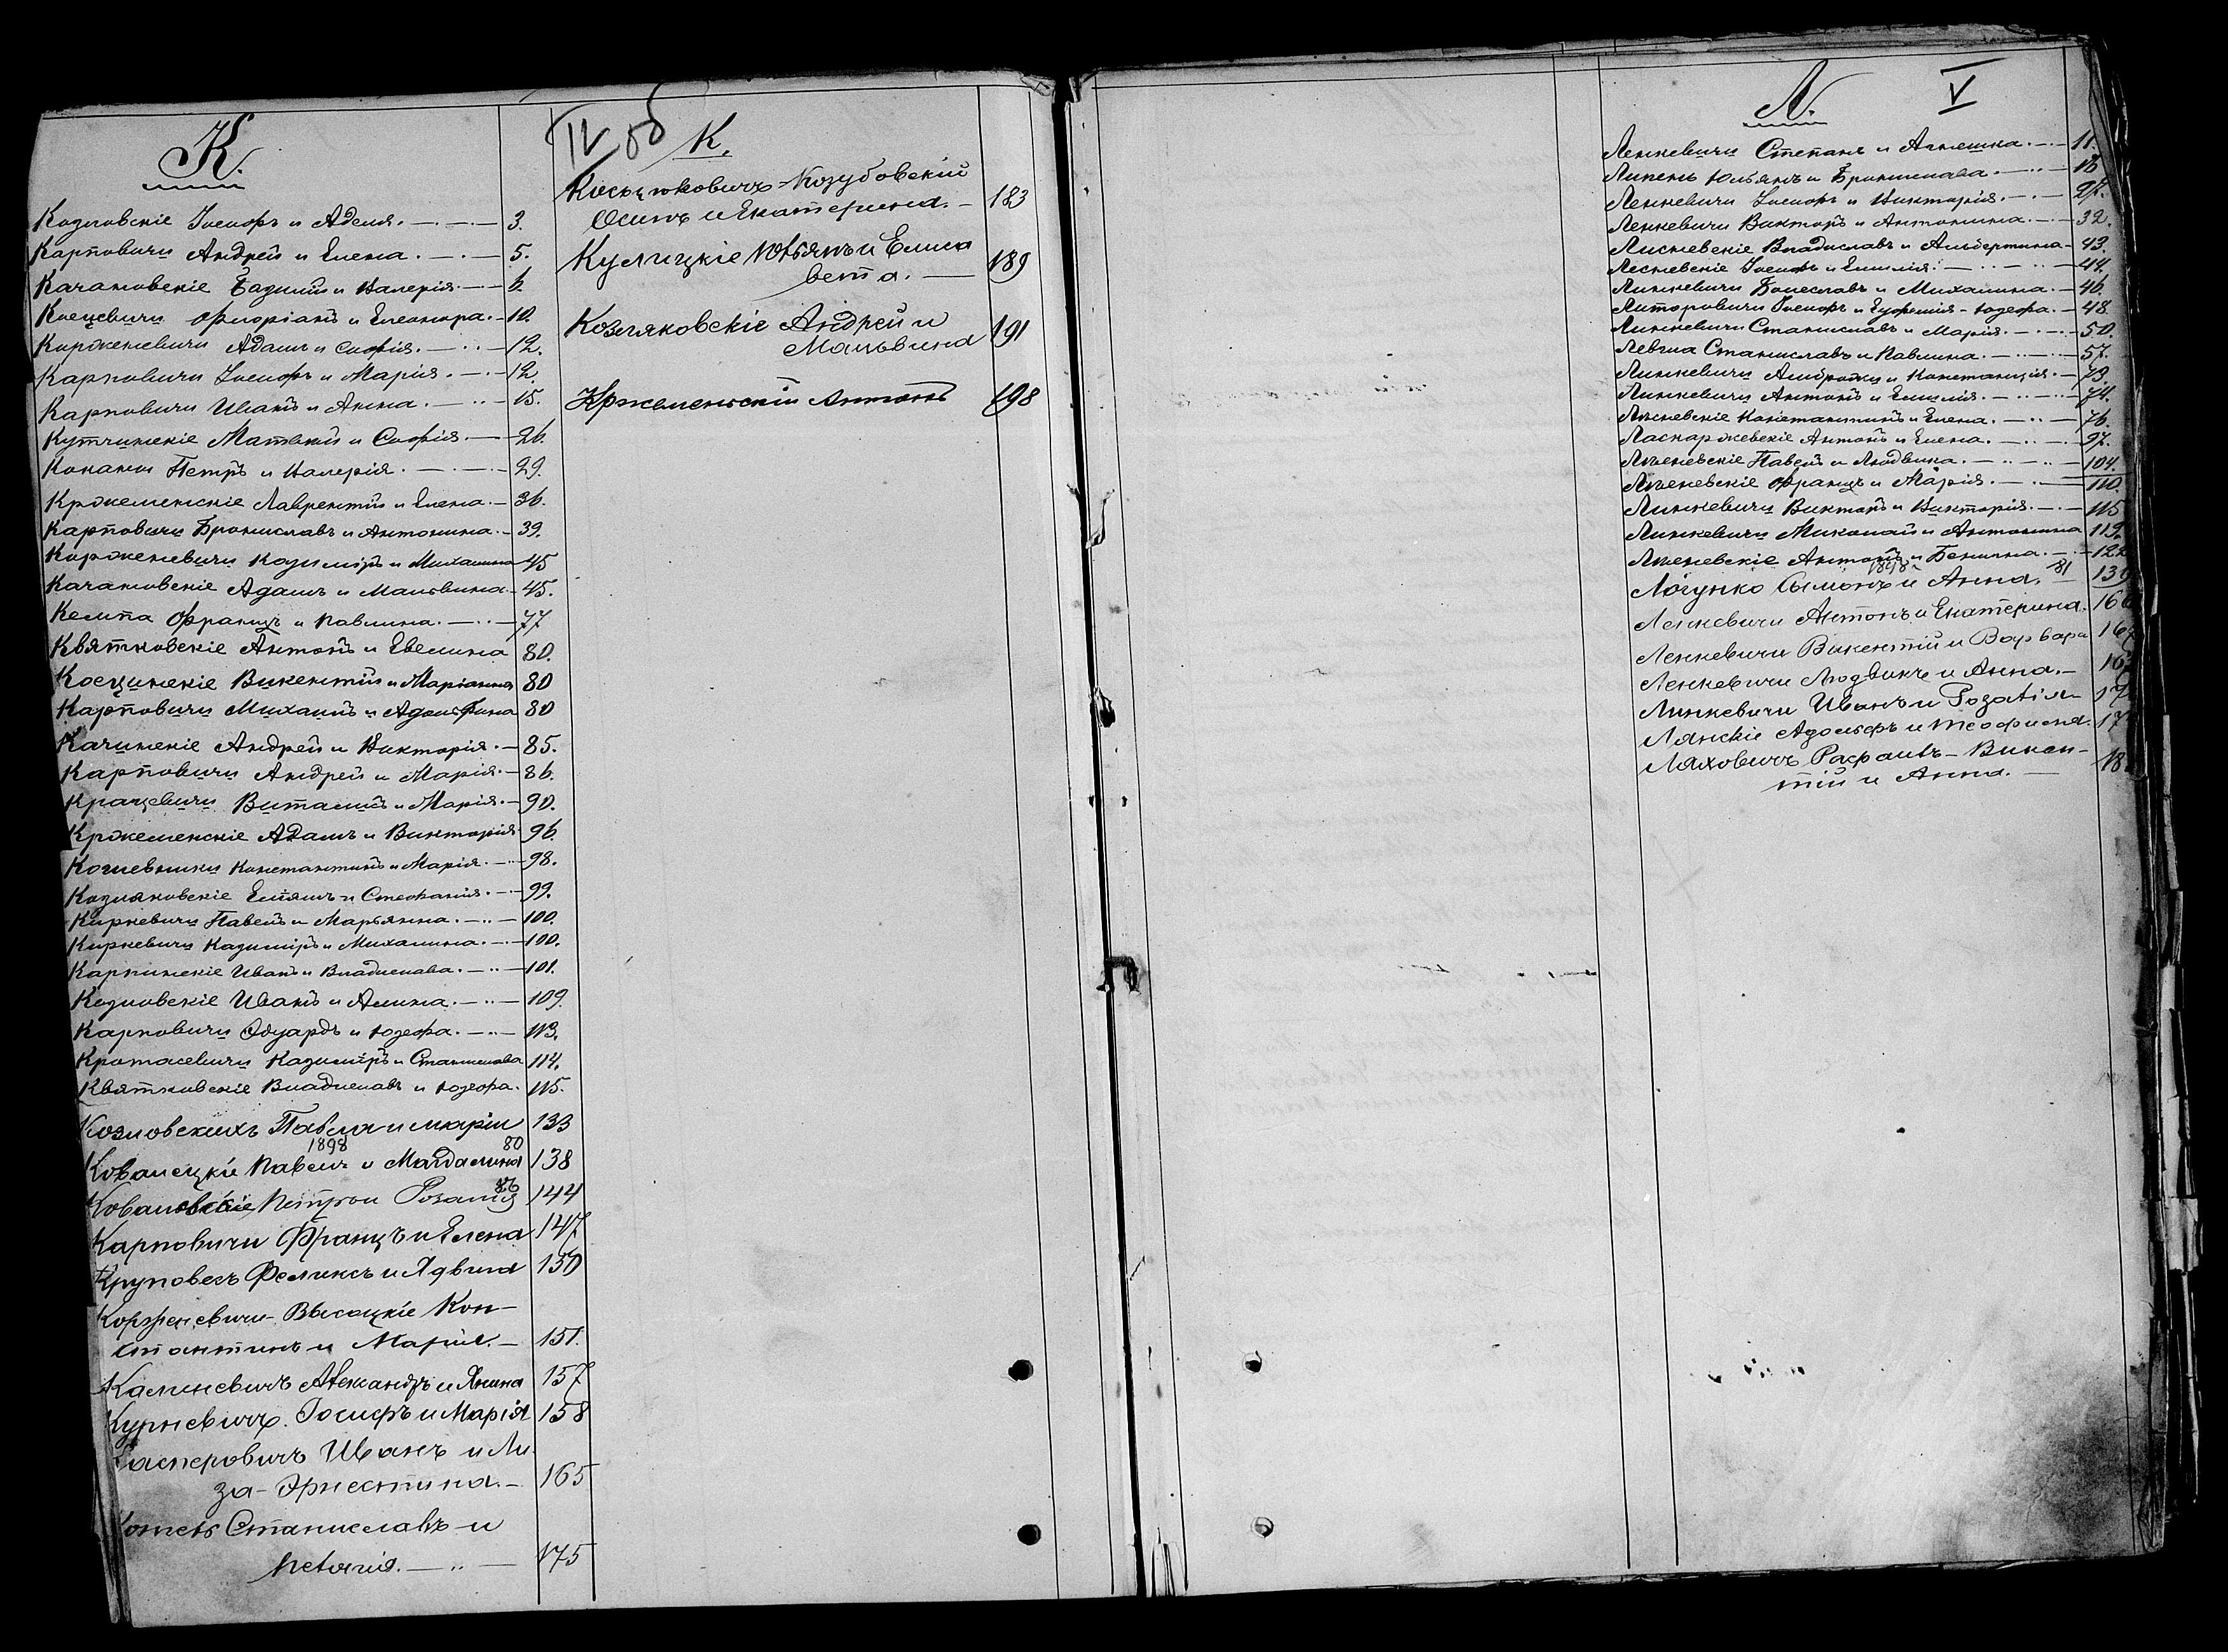 К.
Козловскіе Іосифъ и Аделя. 3.
Карповичи Андрей и Елена. 5.
Качановскіе Базилій и Валерія 6.
Косцевичи Флоріанъ и Елеонора. 10.
Корженевичи Адамъ и Софія. 12.
Карповичи Іосифъ и Марія. 12.
Карповичи Иванъ и Анна. 15.
Кутчинскіе Матвѣй и Софія. 26.
Конаши Петръ и Валерія. 29.
Кржеменскіе Лаврентій и Елена. 36.
Карповичи Брониславъ и Антонина. 39.
Корженевичи Казиміръ и Михалина 45
Качановскіе Адамъ и Мальвина. 45.
Кемпа Францъ и Павлина. 77
Квятковскіе Антонъ и Евелина 80.
Косцинскіе Викентій и Маріанна 80
Карповичи Михаилъ и Адольфина 80
Качинскіе Андрей и Викторія. 85.
Карповичи Андрей и Марія. 86.
Крацевичи Виталій и Марія. 90.
Кржеменскіе Адамъ и Викторія 96.
Константинъ и Марія. 98.
Козляковскіе и Стефанія. 99.
Киркевичи Павелъ и Марьянна. 100.
Киркевичи Казиміръ и Михалина. 100.
Карпинскіе Иванъ и Владислава. 101.
Козловскіе Иванъ и Алина. 109.
Карповичи Эдуардъ и Юзефа. 113.
Кротасевичи Казиміръ и Станислава 114.
Квятковскіе Владиславъ и Юзефа. 115.
Козловскихъ Павла и Маріи 133
1898 80
Ковалецкіе Павелъ и Магдалина 138
86
Ковалевскіе Петръ и Розалія 144
Карповичи Францъ и Елена 147
Круповесъ Феликсъ и Ядвига 150
Корженевичи-Высоцкіе Кон-
стантинъ и Марія. 151.
Калиневичъ Александръ и Янина 157
Курневичъ. Іосифъ и Марія 158
Касперовичъ Иванъ и Ли-
за-Эрнестина. 165
Станиславъ и
175
IV об
К.
Козубовскій
Осипъ и Екатерина. 183
Кулицкіе Юльянъ и Елиса
вета. 189
Козляковскіе Андрей и
Мальвина 191
Кржеменьскій Антонъ 198
Л. V
Ленкевичи Степанъ и Агнешка. 11.
Липень Юльянъ и Бронислава. 18
Ленкевичи Іосифъ и Викторія. 27.
Ленкевичи Викторъ и Антонина. 32.
Лисневскіе Владиславъ и Альбертина 43.
Лесневскіе Іосифъ и Емилія. 44.
Линкевичи Болеславъ и Михалина. 46.
Литоровичи Іосифъ и Еуфемія-Юзефа. 48.
Линкевичи Станиславъ и Марія. 50.
Левша Станиславъ и Павлина. 57.
Линкевичи Амброжи и Констанція. 73.
Линкевичи Антонъ и Емилія. 74.
Константинъ и Елена. 76.
Ласкаржевскіе Антонъ и Елена. 97.
Павелъ и Людвика. 104.
Францъ и Марія. 110.
Линкевичи Викторъ и Викторія. 115
Линкевичи Миколай и Антонина 119.
Антонъ и Бенигна. 122
1898 81
Логунко Сымонъ и Анна. 139
Ленкевичи Антонъ и Екатерина. 166
Ленкевичи Викентій и Варвара 167
Ленкевичи Людвикъ и Анна. 16
Линкевичи Иванъ и Розалія 17
Лянскіе Адольфъ и Теофилія. 17
Ляховичъ Рафаилъ-Викен-
тій и Анна. 18